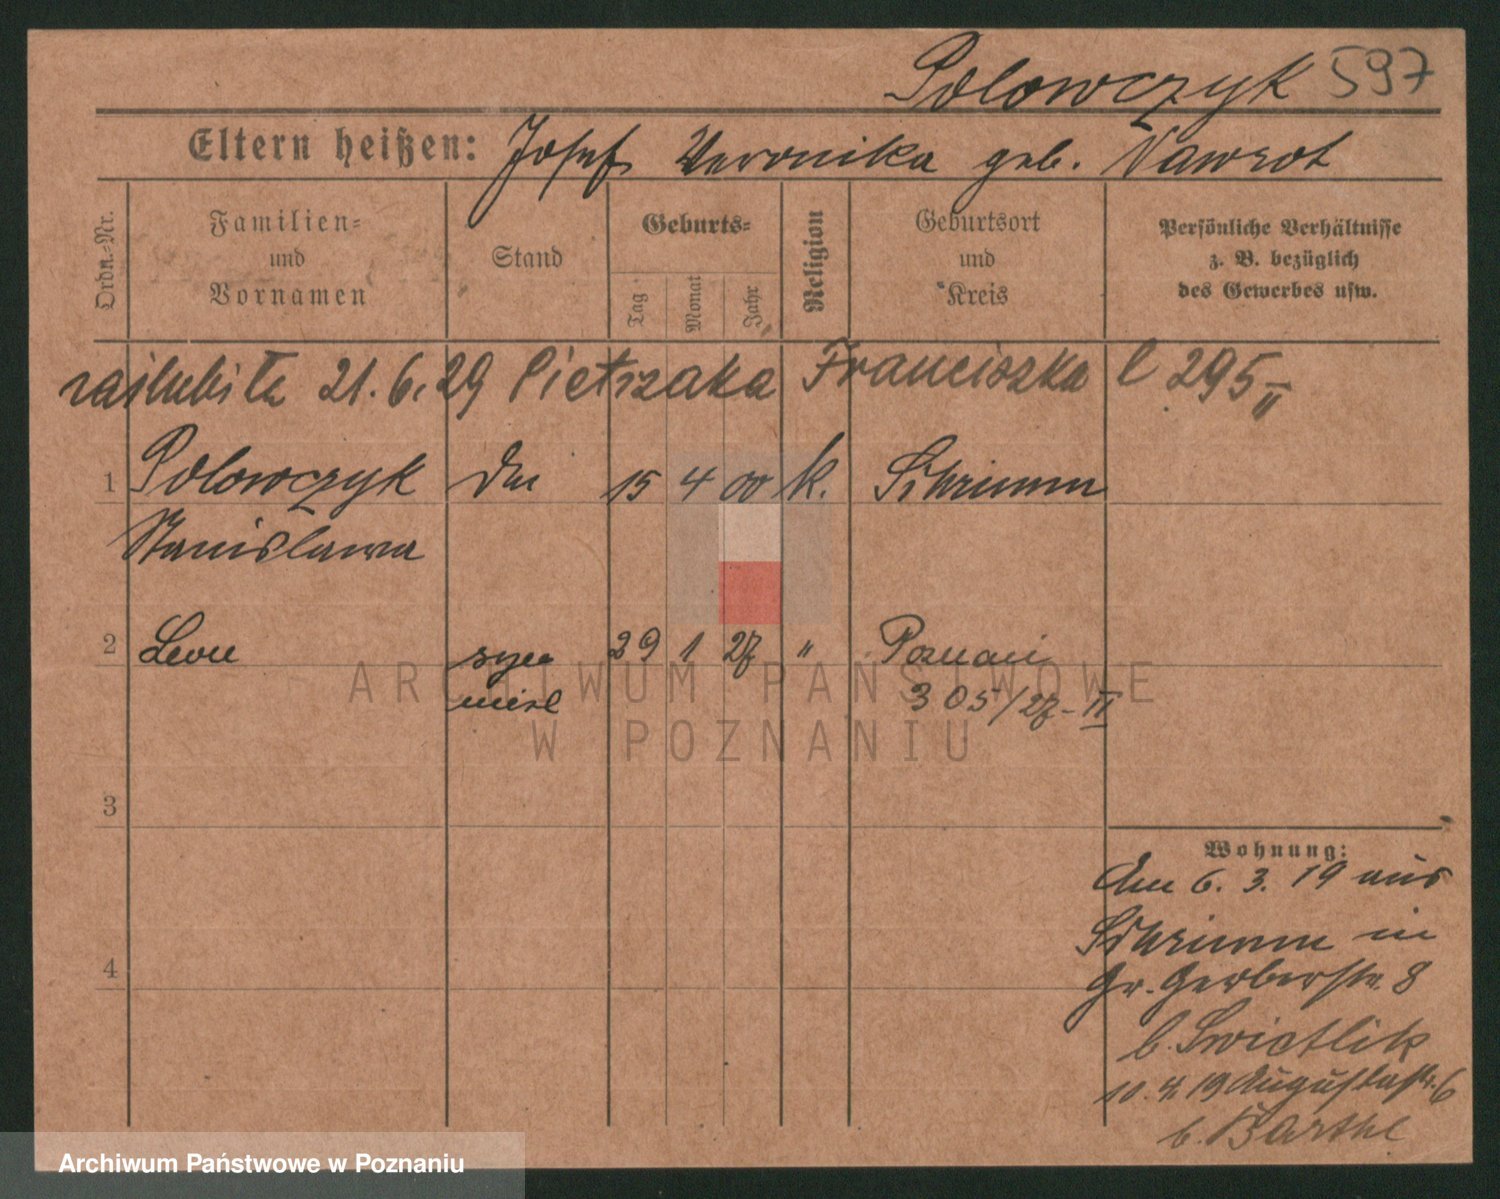 Polowczyk 597
Eltern heißen: Josef Veronika geb. Nawrot
Ordn.-Nr.
Familien-
und
Vornamen
Stand
Geburts-
Tag
Monat
Jahr
Religion
Geburtsort
und
Kreis
Persönliche Verhältnisse
z. B. bezüglich
des Gewerbes usw.
zaślubiła 21.6.29 Pietrzaka Franciszka l 295 II
1 Polowczyk 15 4 00 k. Schrimm
Stanislawa
2 Leon syn 29 1 27 " Poznań
nieśl 305/27-II
3
4
Wohnung:
Am 6. 3. 19 aus
Schrimm in
Gr. Gerberstr. 8
b. Swietlik
10. 4. 19 Augustastr. 6
b. Barthl
ARCHIWUM PAŃSTWOWE
W POZNANIU
Archiwum Państwowe w Poznaniu